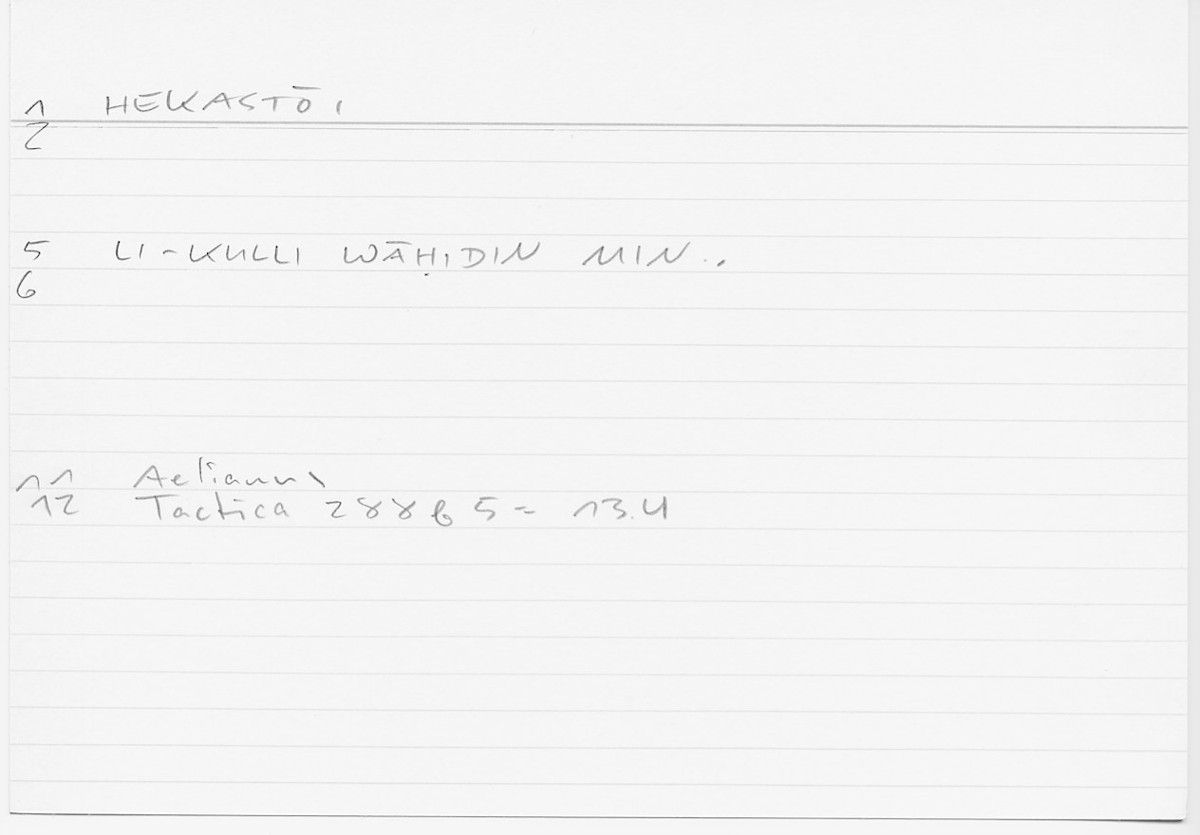 1 HEKASTŌI
2
5 LI-KULLI WĀḤIDIN MIN..
6
11 Aelianus
12 Tactica 288b 5 = 13.4